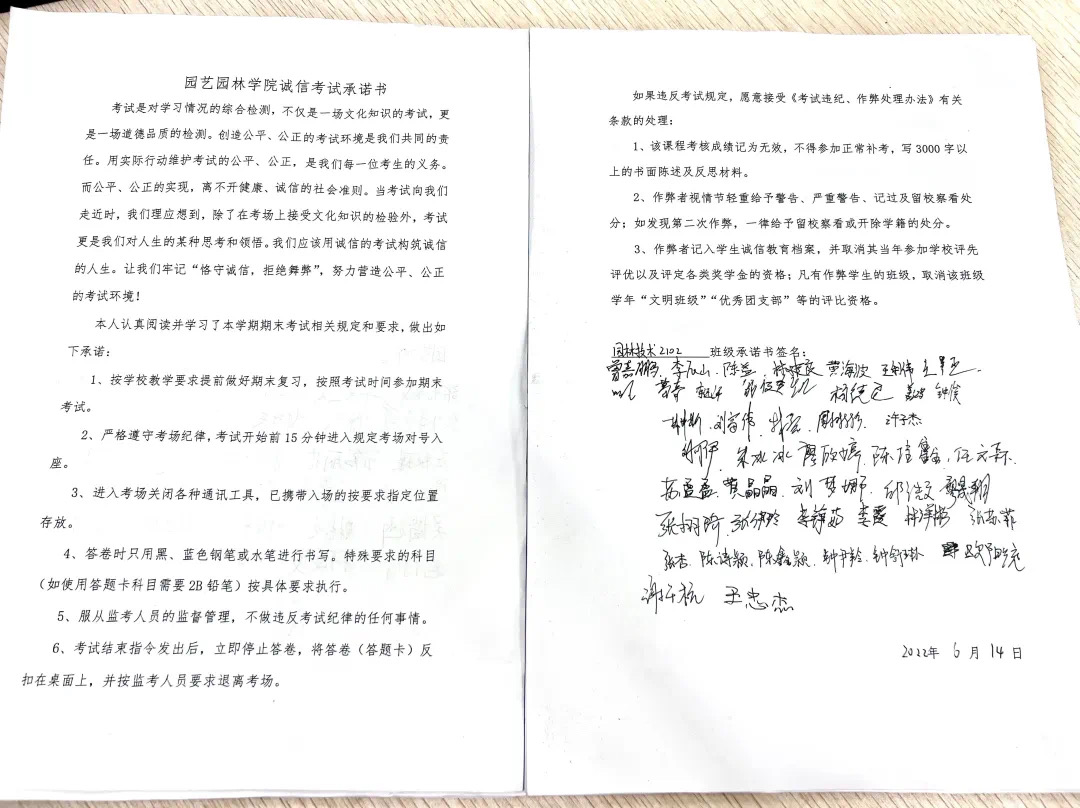 园艺园林学院诚信考试承诺书
考试是对学习情况的综合检测，不仅是一场文化知识的考试，更
是一场道德品质的检测。创造公平、公正的考试环境是我们共同的责
任。用实际行动维护考试的公平、公正，是我们每一位考生的义务。
而公平、公正的实现，离不开健康、诚信的社会准则。当考试向我们
走近时，我们理应想到，除了在考场上接受文化知识的检验外，考试
更是我们对人生的某种思考和领悟。我们应该用诚信的考试构筑诚信
的人生。让我们牢记“恪守诚信，拒绝舞弊”，努力营造公平、公正
的考试环境！
本人认真阅读并学习了本学期期末考试相关规定和要求，做出如
下承诺：
1、按学校教学要求提前做好期末复习，按照考试时间参加期末
考试。
2、严格遵守考场纪律，考试开始前15分钟进入规定考场对号入
座。
3、进入考场关闭各种通讯工具，已携带入场的按要求指定位置
存放。
4、答卷时只用黑、蓝色钢笔或水笔进行书写。特殊要求的科目
（如使用答题卡科目需要2B铅笔）按具体要求执行。
5、服从监考人员的监督管理，不做违反考试纪律的任何事情。
6、考试结束指令发出后，立即停止答卷，将答卷（答题卡）反
扣在桌面上，并按监考人员要求退离考场。
如果违反考试规定，愿意接受《考试违纪、作弊处理办法》有关
条款的处理：
1、该课程考核成绩记为无效，不得参加正常补考，写3000字以
上的书面陈述及反思材料。
2、作弊者视情节轻重给予警告、严重警告、记过及留校察看处
分；如发现第二次作弊，一律给予留校察看或开除学籍的处分。
3、作弊者记入学生诚信教育档案，并取消其当年参加学校评先
评优以及评定各类奖学金的资格；凡有作弊学生的班级，取消该班级
学年“文明班级”“优秀团支部”等的评比资格。
园林技术2102 班级承诺书签名：
陈益 黄海波
刘富伟 许子杰
朱冰冰 廖欣婷 任文森
苏孟孟 黄晶晶 刘梦娜
李霞
张杏 陈诗颖 陈鑫颖
王忠杰
2022年 6 月 14 日